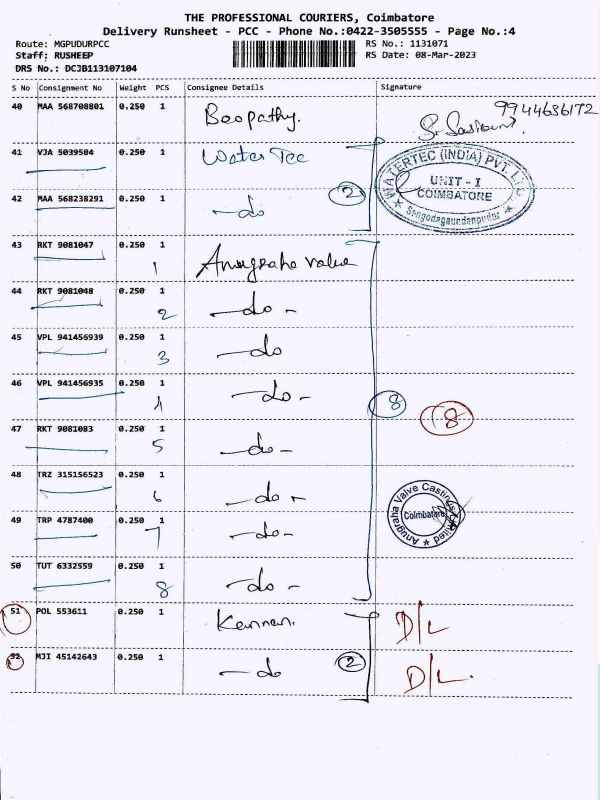 THE PROFESSIONAL COURIERS, Coimbatore
Delivery Runsheet - PCC - Phone No.:0422-3505555 - Page No.:4
Route: MGPUDURPCC RS No.: 1131071
Staff: RUSHEEP RS Date: 08-Mar-2023
DRS No.: DCJB113107104
S No Consignment No Weight PCS Consignee Details Signature
40 MAA 568708801 0.250 1 Boopathy. 9944636172
41 VJA 5039584 0.250 1 Water Tec
WATERTEC (INDIA) PVT. LTD.
UNIT - I
COIMBATORE
42 MAA 568238291 0.250 1 -do 2
43 RKT 9081047 0.250 1 Anugraha Valve
1
44 RKT 9081048 0.250 1 -do-
2
45 VPL 941456939 0.250 1 -do
3
46 VPL 941456935 0.250 1 -do-
4 8 8
47 RKT 9081083 0.250 1 -do-
5
48 TRZ 315156523 0.250 1 -do-
6
Anugraha Valve Castings Limited
Coimbatore
49 TRP 4787400 0.250 1 -do-
7
50 TUT 6332559 0.250 1 -do-
8
51 POL 553611 0.250 1 Kannan. D/L
52 MJI 45142643 0.250 1 -do 2 D/L